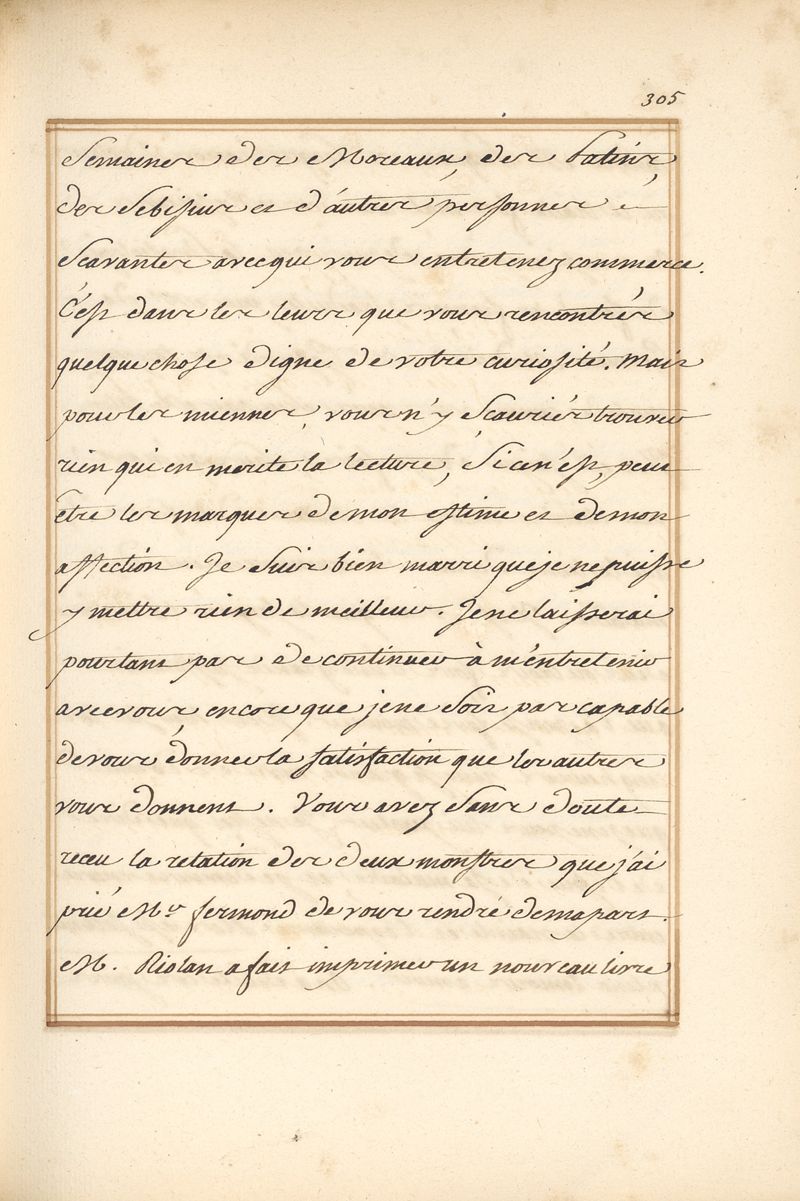 305
Semaines des Moreaux, des Patins,
des Sebisius et d'autres personnes
Scavantes avec qui vous entretenez commerce.
C'est dans les leurs que vous rencontrés
quelque chose digne de votre curiosité. Mais
pour les miennes, vous n'y Scauriés trouver
rien qui en merite la lecture, Si ce n'est, peut
être les marques de mon estime et de mon
affection. Je Suis bien marri que je ne puisse
y mettre rien de meilleur. Je ne laisserai
pourtant pas de continuer à m'entretenir
avec vous encore que je ne Sois pas capable
de vous donner la satisfaction que les autres
vous donnent. Vous avez Sans doute
receu la relation des deux monstres que j'ai
prié Mr. fermond de vous rendre de ma part.
M. Riolan a fait imprimer un nouveau livre